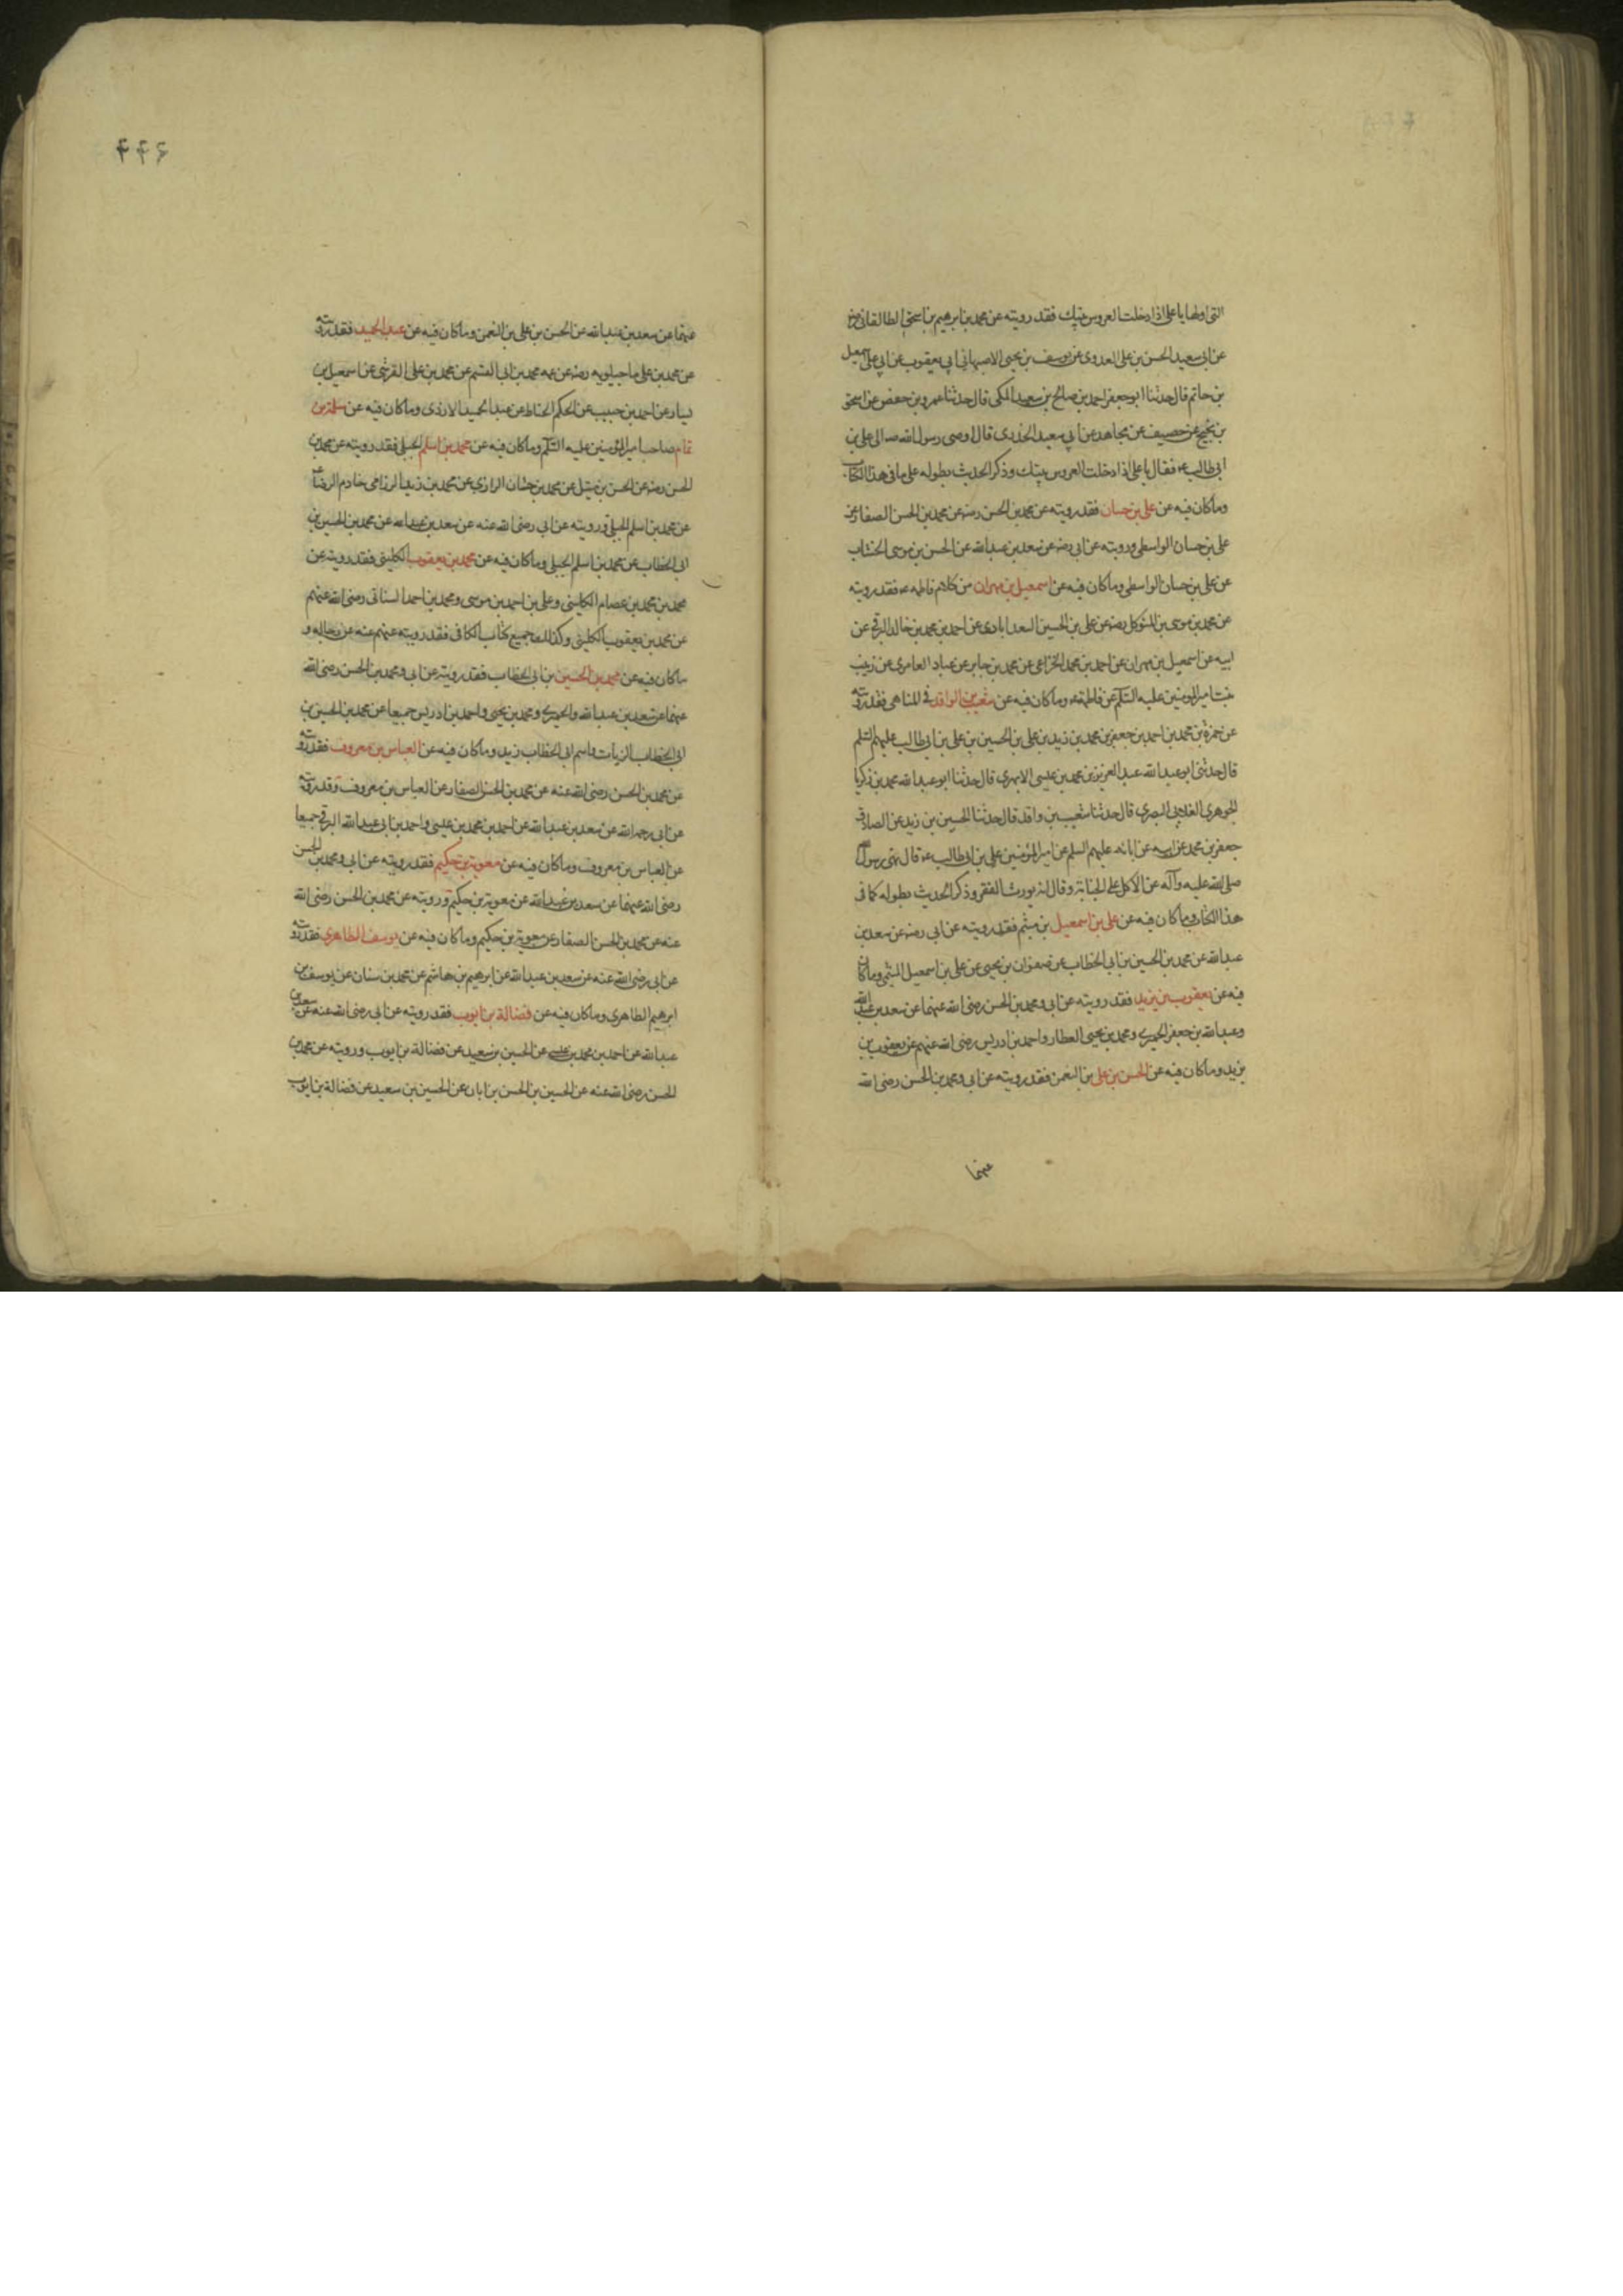 التى اولها يا على اذا دخلت العروس بيتك فقد رويته عن محمد بن ابرهيم بن اسحق الطالقانى رض
عن ابى سعيد الحسن بن على العدوى عن يوسف بن يحيى الاصبهانى ابى يعقوب عن ابى على اسمعيل
بن حاتم قال حدثنا ابو جعفر احمد بن صالح بن سعيد المكى قال حدثنا عمرو بن حفص عن اسحق
بن نجيح عن حصيف عن مجاهد عن ابى سعيد الخدرى قال اوصى رسول الله صه الى على بن
ابى طالب ء فقال يا على اذا دخلت العروس بيتك وذكر الحديث بطوله على ما فى هذا الكتاب
وما كان فيه عن على بن حسان فقد رويته عن محمد بن الحسن رضه عن محمد بن الحسن الصفار عن
على بن حسان الواسطى ورويته عن ابى رضه عن سعد بن عبد الله عن الحسن بن موسى الخشاب
عن على بن حسان الواسطى وما كان فيه عن اسمعيل بن مهران من كلام فاطمه ء فقد رويته
عن محمد بن موسى بن المتوكل رضه عن على بن الحسين السعدابادى عن احمد بن محمد بن خالد البرقى عن
ابيه عن اسمعيل بن مهران عن احمد بن محمد الخزاعى عن محمد بن جابر عن عباد العامرى عن زينب
بنت امير المومنين عليه السلم عن فاطمة ء وما كان فيه عن شعيب بن الواقد فى المناهى فقد رويته
عن حمزة بن محمد بن احمد بن جعفر بن محمد بن زيد بن على بن الحسين بن على بن ابى طالب عليهم السلم
قال حدثنى ابو عبد الله عبد العزيز بن محمد بن عيسى الابهرى قال حدثنا ابو عبد الله محمد بن زكريا
الجوهرى الغلابى البصرى قال حدثنا شعيب بن واقد قال حدثنا الحسين بن زيد عن الصادق
جعفر بن محمد عن ابيه عن ابائه عليهم السلم عن امير المؤمنين على بن ابى طالب ء قال نهى رسول الله
صلى الله عليه وآله عن الاكل على الجنابة وقال انه يورث الفقر وذكر الحديث بطوله كما فى
هذا الكتاب وما كان فيه عن على بن اسمعيل بن ميثم فقد رويته عن ابى رضه عن سعد بن
عبد الله عن محمد بن الحسين بن ابى الخطاب عن صفوان بن يحيى عن على بن اسمعيل الميثمى وما كان
فيه عن يعقوب بن يزيد فقد رويته عن ابى ومحمد بن الحسن رضى الله عنهما عن سعد بن عبد الله
وعبد الله بن جعفر الحميرى ومحمد بن يحيى العطار واحمد بن ادريس رضى الله عنهم عن يعقوب بن
يزيد وما كان فيه عن الحسن بن على بن النعمن فقد رويته عن ابى ومحمد بن الحسن رضى الله
عنهما
۴۴۶
عنهما عن سعد بن عبد الله عن الحسن بن على بن النعمن وما كان فيه عن عبد الحميد فقد رويته
عن محمد بن على ماجيلويه رضه عن عمه محمد بن ابى القسم عن محمد بن على القرشى عن اسمعيل بن
يسار عن احمد بن حبيب عن الحكم الخياط عن عبد الحميد الازدى وما كان فيه عن سلمة بن
تمام صاحب امير المؤمنين عليه السلم وما كان فيه عن محمد بن اسلم الجبلى فقد رويته عن محمد بن
الحسن رضه عن الحسن بن متيل عن محمد بن حسان الرازى عن محمد بن زيد الرزامى خادم الرضا ء
عن محمد بن اسلم الجبلى ورويته عن ابى رضى الله عنه عن سعد بن عبد الله عن محمد بن الحسين بن
ابى الخطاب عن محمد بن اسلم الجبلى وما كان فيه عن محمد بن يعقوب الكلينى فقد رويته عن
محمد بن محمد بن عصام الكلينى وعلى بن احمد بن موسى ومحمد بن احمد السنانى رضى الله عنهم
عن محمد بن يعقوب الكلينى وكذلك جميع كتاب الكافى فقد رويته عنهم عنه عن رجاله و
ما كان فيه عن محمد بن الحسين بن ابى الخطاب فقد رويته عن ابى ومحمد بن الحسن رضى الله
عنهما عن سعد بن عبد الله والحميرى ومحمد بن يحيى واحمد بن ادريس جميعا عن محمد بن الحسين بن
ابى الخطاب الزيات واسم ابى الخطاب زيد وما كان فيه عن العباس بن معروف فقد رويته
عن محمد بن الحسن رضى الله عنه عن محمد بن الحسن الصفار عن العباس بن معروف وقد رويته
عن ابى رحمه الله عن سعد بن عبد الله عن احمد بن محمد بن عيسى واحمد بن ابى عبد الله البرقى جميعا
عن العباس بن معروف وما كان فيه عن معوية بن حكيم فقد رويته عن ابى ومحمد بن الحسن
رضى الله عنهما عن سعد بن عبد الله عن معوية بن حكيم ورويته عن محمد بن الحسن رضى الله
عنه عن محمد بن الحسن الصفار عن معوية بن حكيم وما كان فيه عن يوسف الطاهرى فقد رويته
عن ابى رضى الله عنه عن سعد بن عبد الله عن ابرهيم بن هاشم عن محمد بن سنان عن يوسف بن
ابرهيم الطاهرى وما كان فيه عن فضالة بن ايوب فقد رويته عن ابى رضى الله عنه عن سعد بن
عبد الله عن احمد بن محمد بن عيسى عن الحسين بن سعيد عن فضالة بن ايوب ورويته عن محمد بن
الحسن رضى الله عنه عن الحسين بن الحسن بن ابان عن الحسين بن سعيد عن فضالة بن ايوب